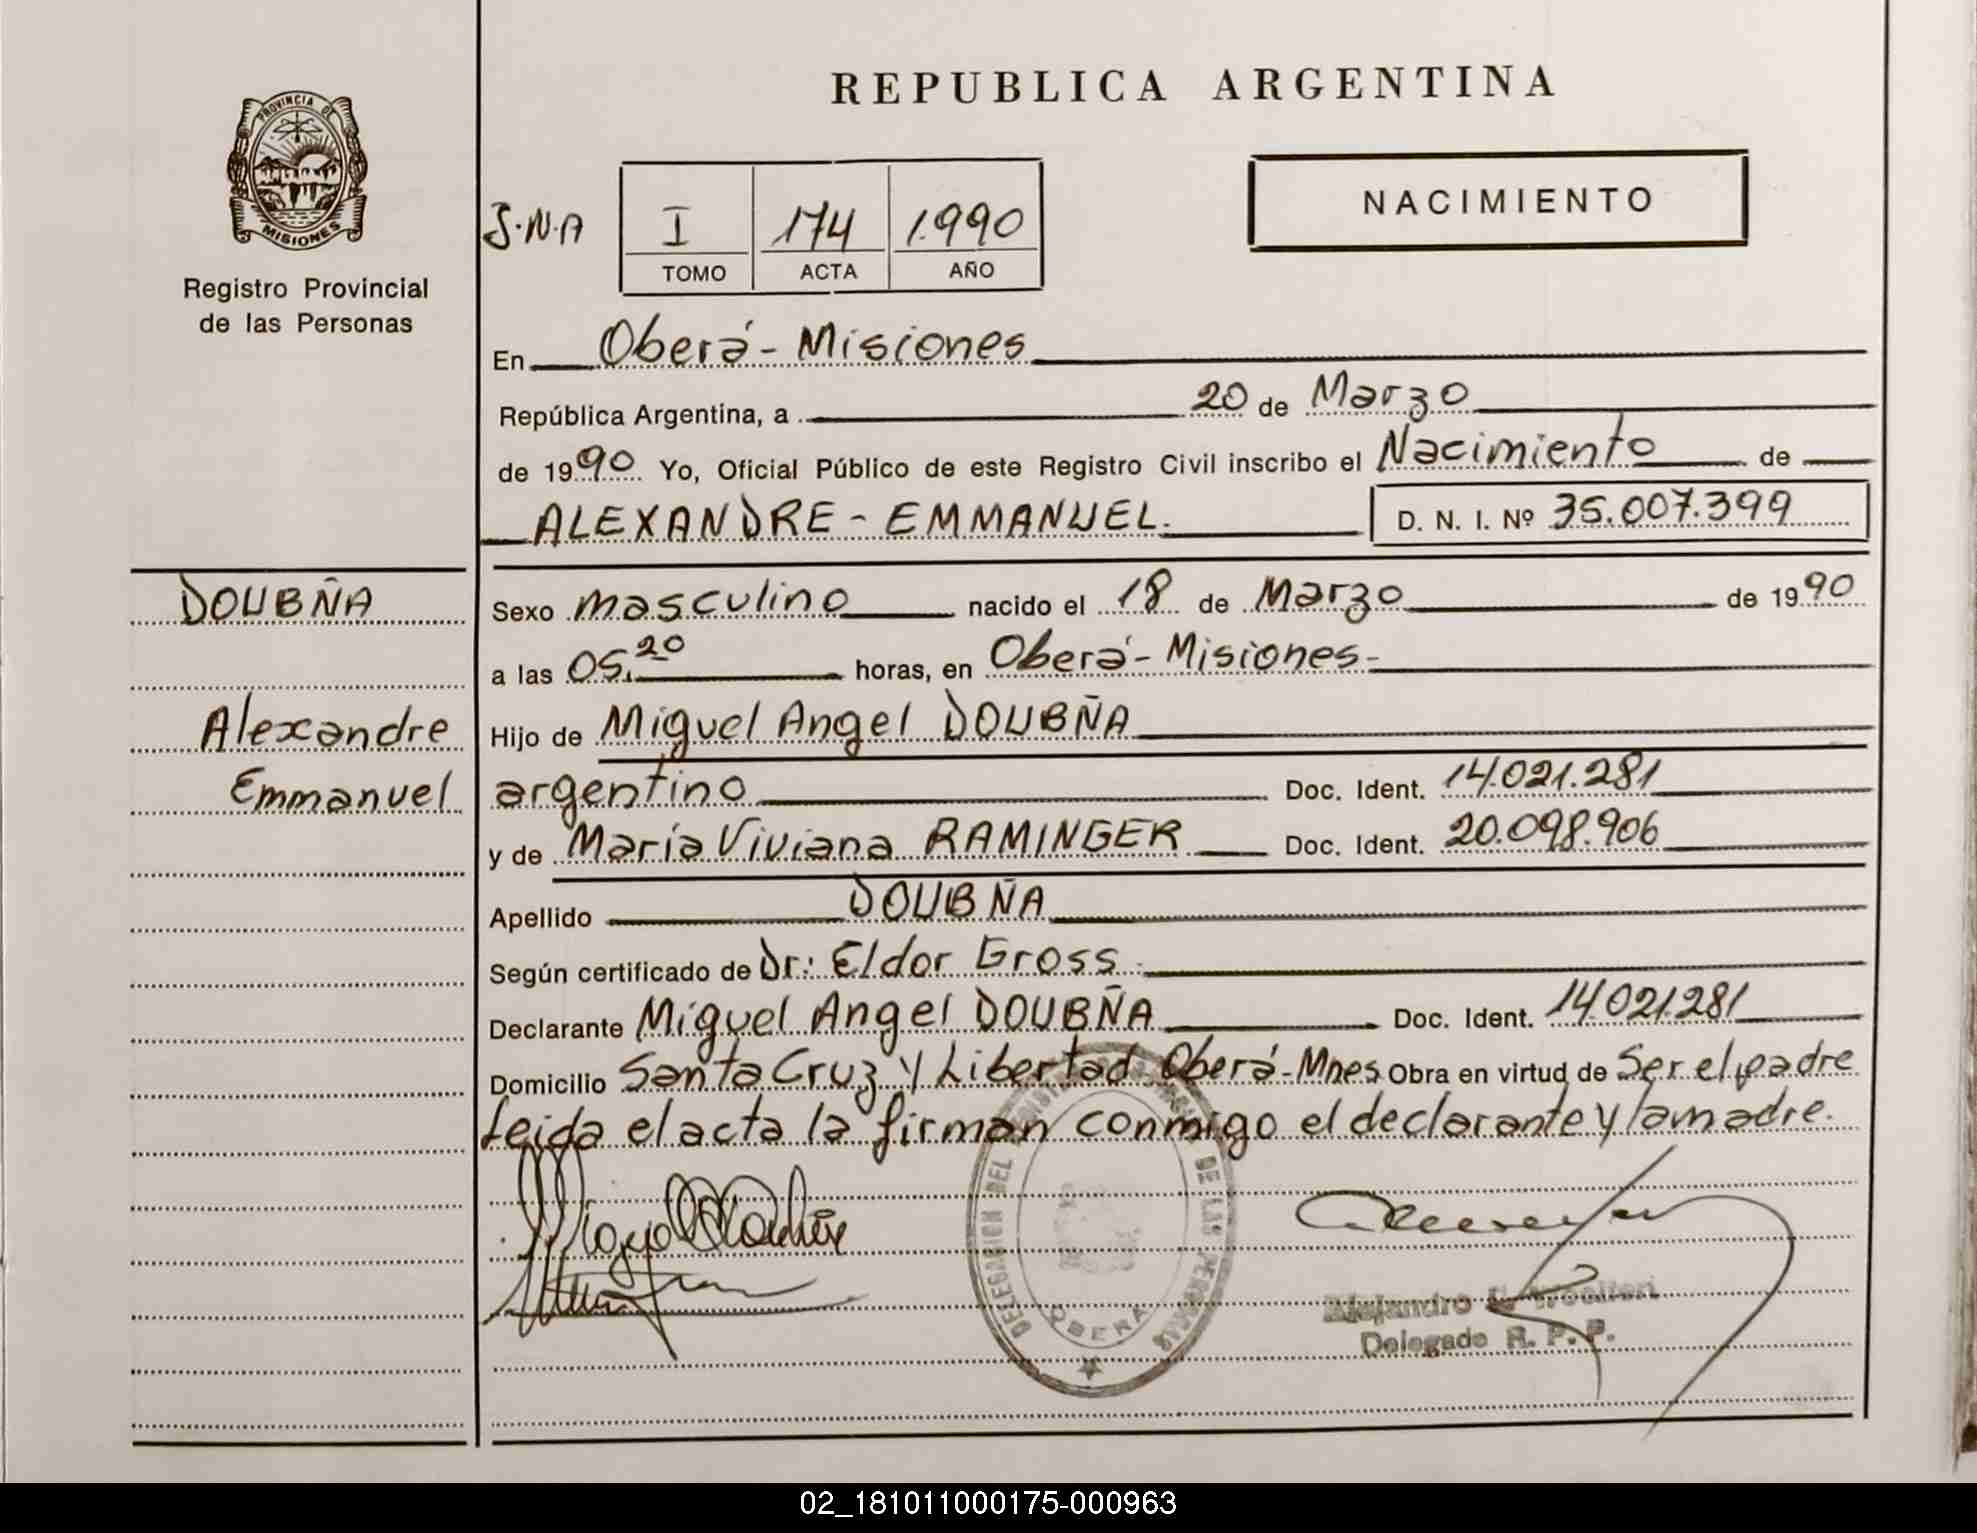 PROVINCIA DE
MISIONES
Registro Provincial
de las Personas
REPUBLICA ARGENTINA
NACIMIENTO
J.N.A
I 174 1.990
TOMO ACTA AÑO
En Oberá - Misiones
República Argentina, a 20 de Marzo
de 1990 Yo, Oficial Público de este Registro Civil inscribo el Nacimiento de
ALEXANDRE - EMMANUEL. D. N. I. Nº 35.007.399
DOUBÑA
Alexandre
Emmanuel
Sexo masculino nacido el 18 de Marzo de 1990
a las 05.20 horas, en Oberá - Misiones-
Hijo de Miguel Angel DOUBÑA
argentino Doc. Ident. 14.021.281
y de María Viviana RAMINGER Doc. Ident. 20.098.906
Apellido DOUBÑA
Según certificado de Dr: Eldor Gross.
Declarante Miguel Angel DOUBÑA Doc. Ident. 14.021.281
Domicilio Santa Cruz y Libertad Oberá-Mnes Obra en virtud de Ser el padre
Leida el acta la firman conmigo el declarante y la madre.
DELEGACION DEL REGISTRO DE LAS PERSONAS
OBERA
Alejandro
Delegado R. P. P.
02_181011000175-000963